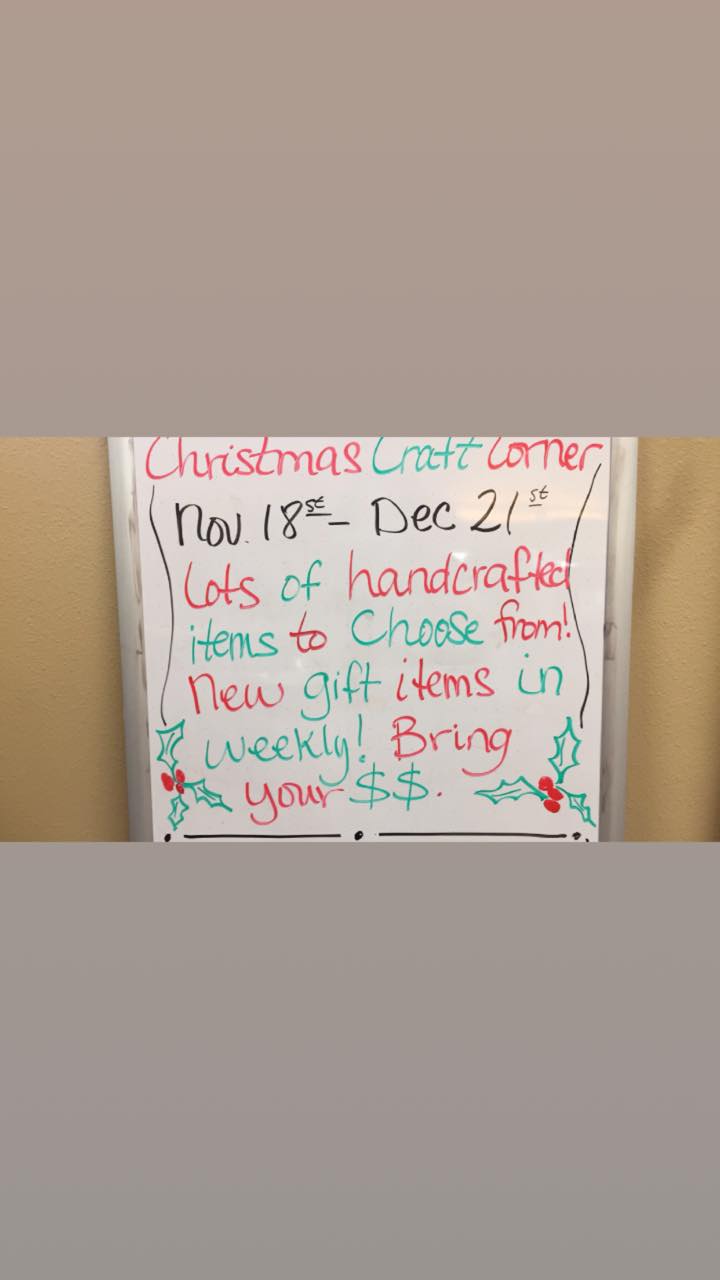 Christmas Craft Corner
Nov. 18st - Dec 21st
Lots of handcrafted
items to Choose from!
New gift items in
weekly! Bring
your $$.